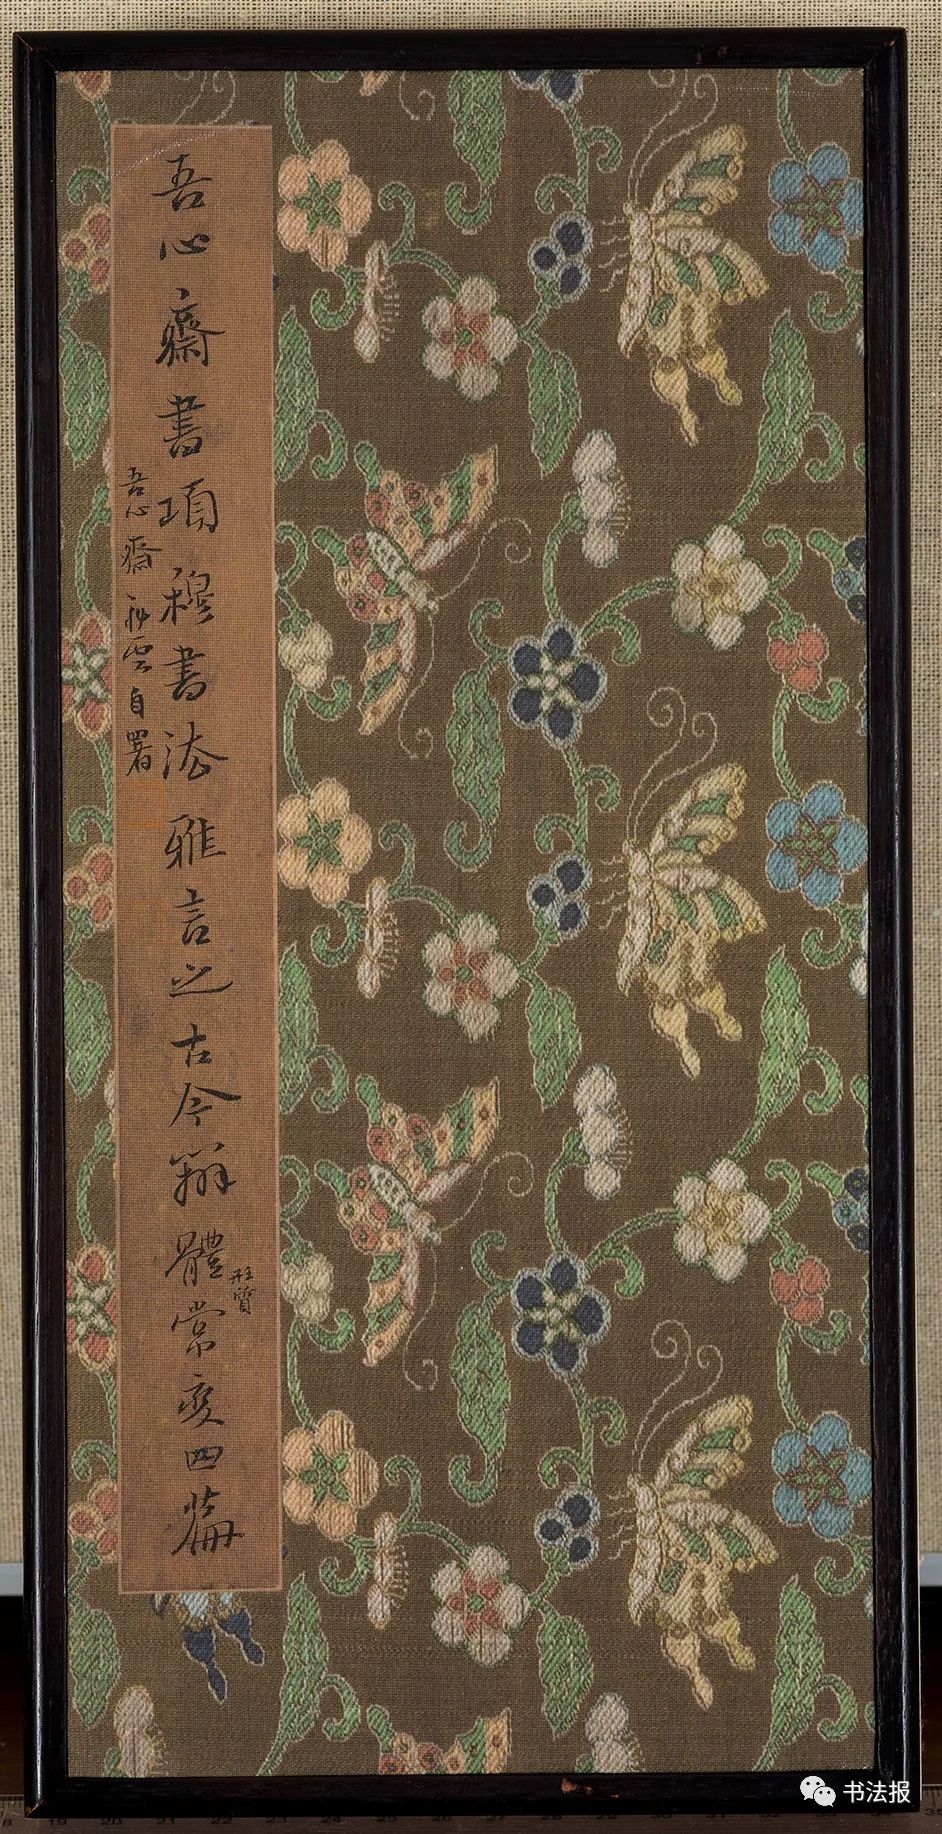 吾心齋書項穆書法雅言之古今辨體常變四篇
形質
吾心齋雲自署
书法报